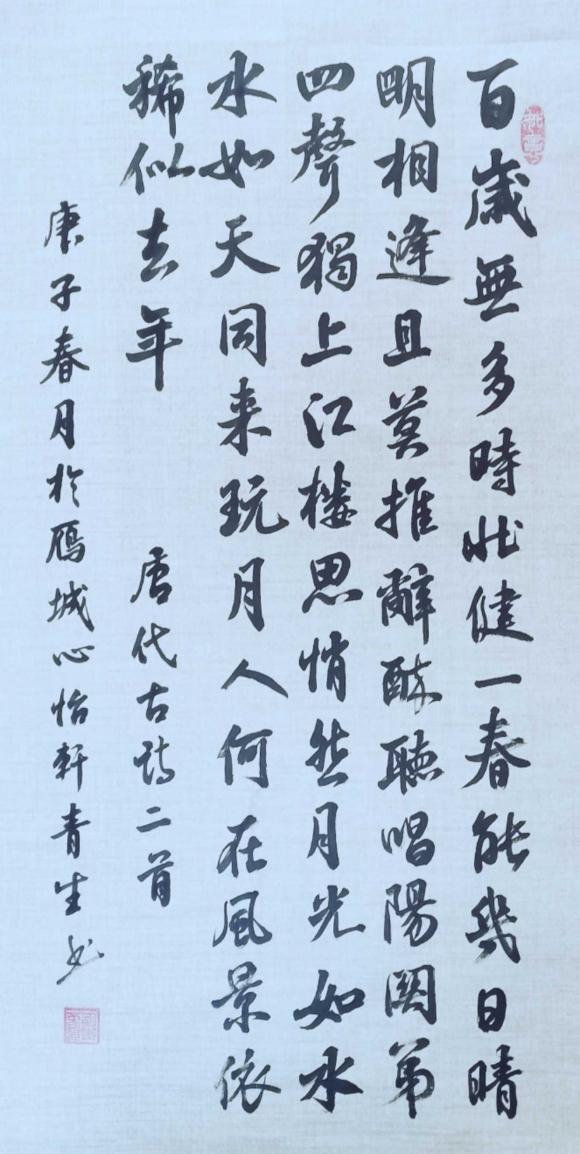 百歲無多時壯健一春能幾日晴
明相逢且莫推辭醉聽唱陽關第
四聲獨上江樓思悄然月光如水
水如天同来玩月人何在風景依
稀似去年 唐代古詩二首
庚子春月於鴈城心怡軒青生书